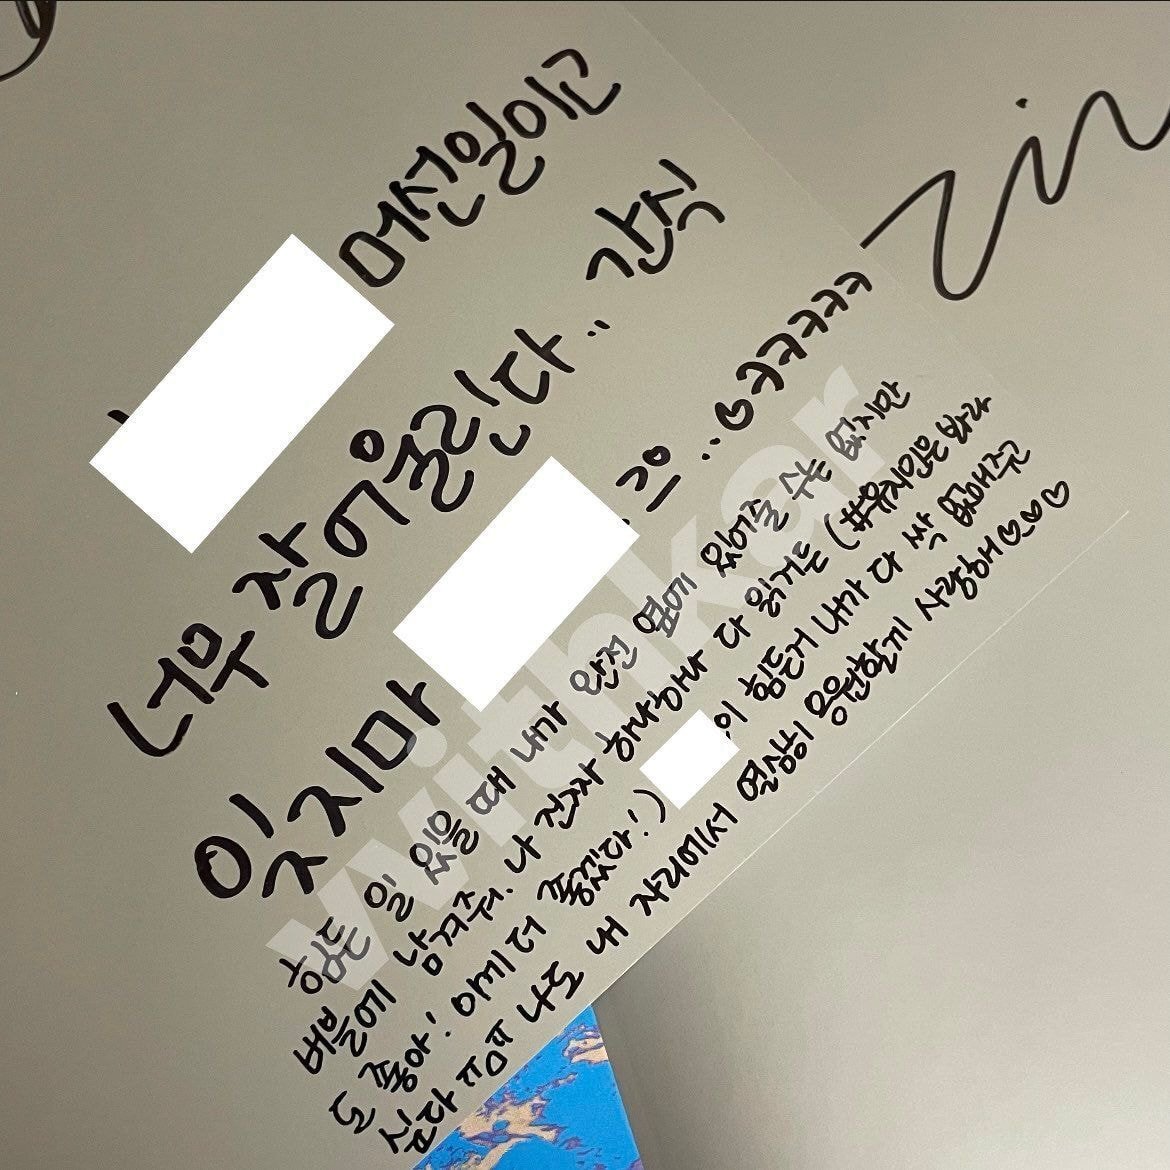 머선일이고
너무 잘어울린다.. 간식
잊지마 ..♡ㅋㅋㅋㅋㅋ
힘든 일 있을 때 내가 완전 옆에 있어줄 수는 없지만
버블에 남겨줘. 나 진짜 하나하나 다 읽거든 (#유지민은바라
도 좋아! 아예 더 좋겠다!) 이 힘든거 내가 다 싹 없애주고
싶다 ㅠㅁㅠ 나도 내 자리에서 열심히 응원할게 사랑해♡♡♡
withkar